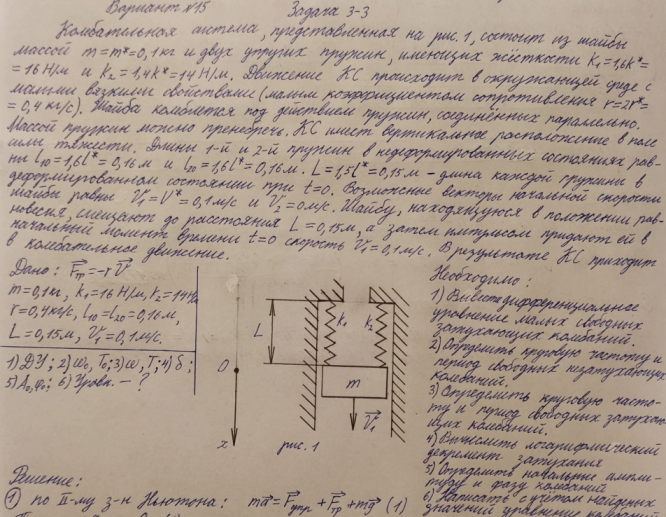 Вариант №15 Задача 3-3
Колебательная система, представленная на рис. 1, состоит из шайбы
массой m=m*=0,1кг и двух упругих пружин, имеющих жёсткости k₁=1,6k*=
=16Н/м и k₂=1,4k*=14Н/м. Движение КС происходит в окружающей среде с
малыми вязкими свойствами (малым коэффициентом сопротивления r=2r*=
=0,4 кг/с). Шайба колеблется под действием пружин, соединённых параллельно.
Массой пружин можно пренебречь. КС имеет вертикальное расположение в поле
силы тяжести. Длины 1-й и 2-й пружин в недеформированных состояниях рав-
ны l₁₀=1,6l*=0,16м и l₂₀=1,6l*=0,16м. L=1,5l*=0,15м - длина каждой пружины в
деформированном состоянии при t=0. Возможные векторы начальной скорости
шайбы равны V₁=V*=0,1м/с и V₂=0м/с. Шайбу, находящуюся в положении рав-
новесия, смещают до расстояния L=0,15м, а затем импульсом придают ей в
начальный момент времени t=0 скорость V₁=0,1м/с. В результате КС приходит
в колебательное движение.
Дано: F⃗тр=-rV⃗
m=0,1кг, k₁=16Н/м, k₂=14Н/м
r=0,4кг/с, l₁₀=l₂₀=0,16м,
L=0,15м, V⃗₁=0,1м/с.
1) ДУ; 2) ω₀, T₀; 3) ω, T; 4) δ;
5) A₀, φ₀; 6) Уравн. - ?
L
k₁
k₂
m
V⃗₁
0
x
рис. 1
Необходимо:
1) Вывести дифференциальное
уравнение малых свободных
затухающих колебаний.
2) Определить круговую частоту и
период свободных незатухающих
колебаний.
3) Определить круговую часто-
ту и период свободных затухаю-
щих колебаний.
4) Вычислить логарифмический
декремент затухания
5) Определить начальные ампли-
туду и фазу колебаний
6) Записать с учётом найденных
значений уравнение колебаний
Решение:
① по II-му з-н Ньютона: ma⃗=F⃗упр+F⃗тр+mg⃗ (1)